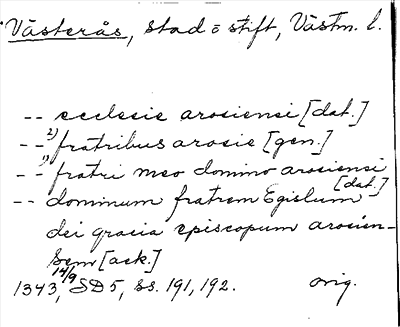 Västerås, stad o stift, Västm. l.
-- ecclesie arosiensi [dat.]
-- 2) fratribus arosie [gen.]
-- 1) fratri meo domino arosiensi [dat.]
-- dominum fratrem Egislum
dei gracia episcopum arosien-
sem [ack.]
1343, 14/9 SD 5, ss. 191, 192. orig.